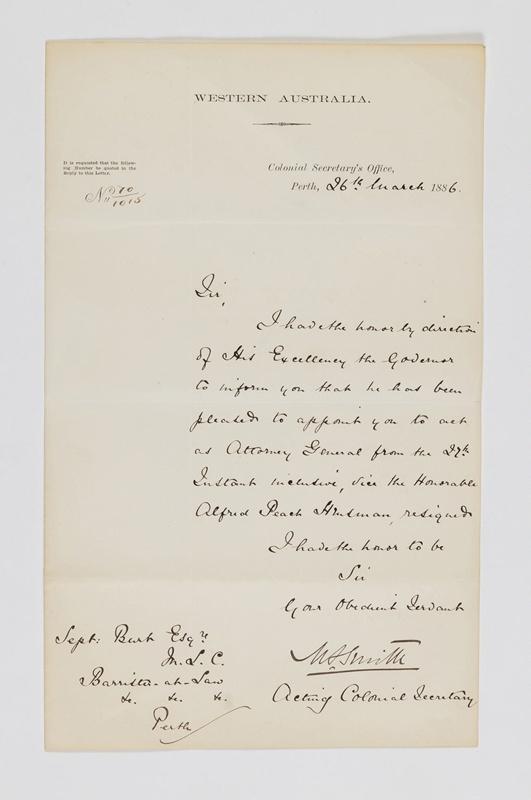 WESTERN AUSTRALIA.
It is requested that the follow-
ing Number be quoted in the
Reply to this Letter.
Colonial Secretary's Office,
Perth, 26th March 1886.
No 970/1015
Sir,
I have the honor by direction
of His Excellency the Governor
to inform you that he has been
pleased to appoint you to act
as Attorney General from the 27th
Instant inclusive, vice the Honorable
Alfred Peach Hensman, resigned
I have the honor to be
Sir
Your Obedient Servant
M S Smith
Acting Colonial Secretary
Sept: Burt Esqre
M. L. C.
Barrister-at-Law
&c. &c. &c.
Perth